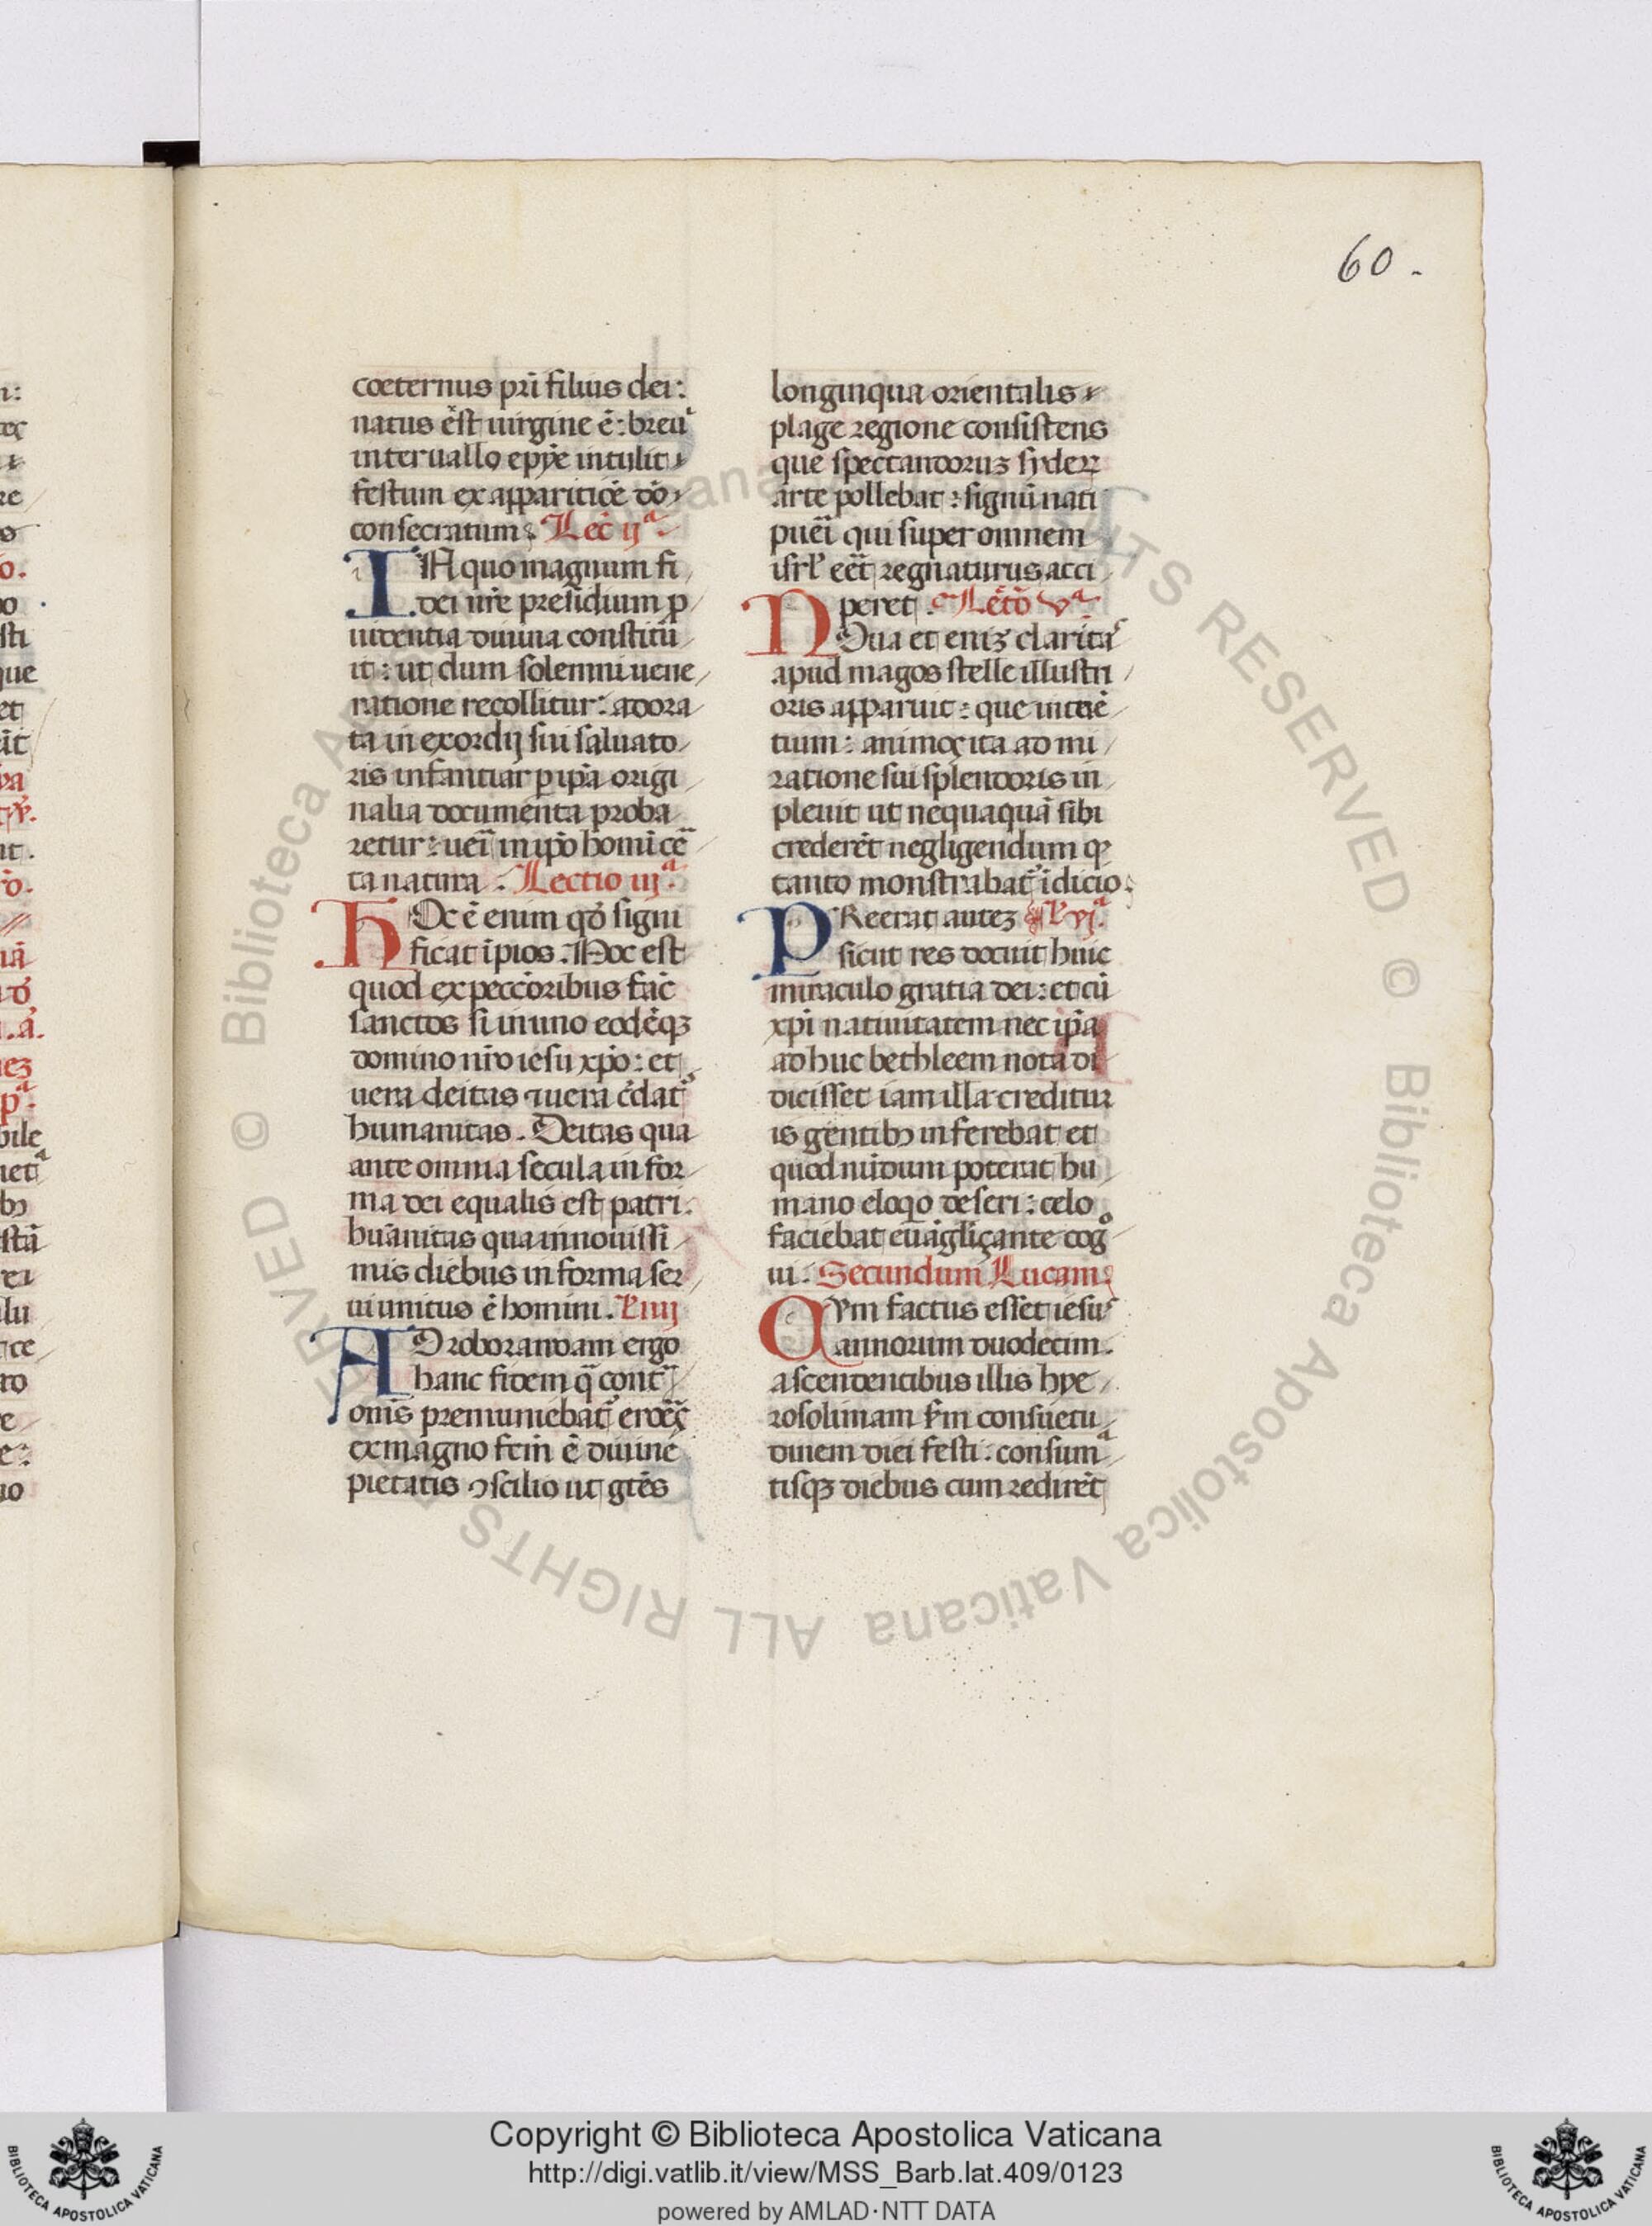 60.
coeternus pri᷑ filius dei:
natus e᷑st uirgine ē: breui
interuallo epyē intulit
festum ex apparitiōe dō
consecratum. Lec̄ ijª.
IN quo magnum fi
dei nr̄e presidium p
uidentia diuina constitu
it: ut dum solemni uene
ratione recollitur: adora
ta in exordij sui saluato
ris infantia: p ip̄a origi
nalia documenta proba
retur: uei᷑ in ip̄o homi᷑ cē
ta natura. Lectio iijª.
HOc ē enim qđ signi
ficat īpios. Hoc est
quod ex peccōribus fac̄
sanctos si in uno eodēqꝫ
domino nr̄o iesu xp̄o: et
uera deitas ⁊ uera c᷑dat᷑
humanitas. Deitas qua
ante omnia secula in for
ma dei equalis est patri:
huānitas qua in nouissi
mis diebus in forma ser
ui unitus ē homini. L̄ iiij
AD roborandam ergo
hanc fidem q̄ cont᷑
onis premuniebat᷑ eroēs̄
ex magno fcm̄ ē diuine
pietatis ꝯscilio ut gtēs
longinqua orientalis
plage regione consistens
que spectandoruꝫ syderꝝ
arte pollebat: signū nati
puei᷑ qui super omnem
isrl̄ eēt regnaturus acci
peret. Lectō vª.
NOua et eniꝫ claritas
apud magos stelle illustri
oris apparuit: que intuē
tium: animos ita ad mi
ratione sui splendoris in
pleuit ut nequaquā sibi
crederēt negligendum qꝫ
tanto monstrabat᷑ īdicio.
PReerat auteꝫ L̄ vjª.
sicut res docuit huic
miraculo gratia dei: et cū
xp̄i natiuitatem nec ip̄a
adhuc bethleem nota di
dicisset iam illa creditur
is gentibꝫ inferebat et
quod nūdum poterat hu
mano eloqo deseri: celo
faciebat euāgliçante cog
ui. Secundum Lucam.
QVm factus esset iesus
annorum duodecim.
ascendentibus illis hye
rosolimam sm̄ consuetu
dinem diei festi: consumª
tisqꝫ diebus cum redirēt
Copyright © Biblioteca Apostolica Vaticana
http://digi.vatlib.it/view/MSS_Barb.lat.409/0123
powered by AMLAD·NTT DATA
BIBLIOTECA APOSTOLICA VATICANA
BIBLIOTECA APOSTOLICA VATICANA